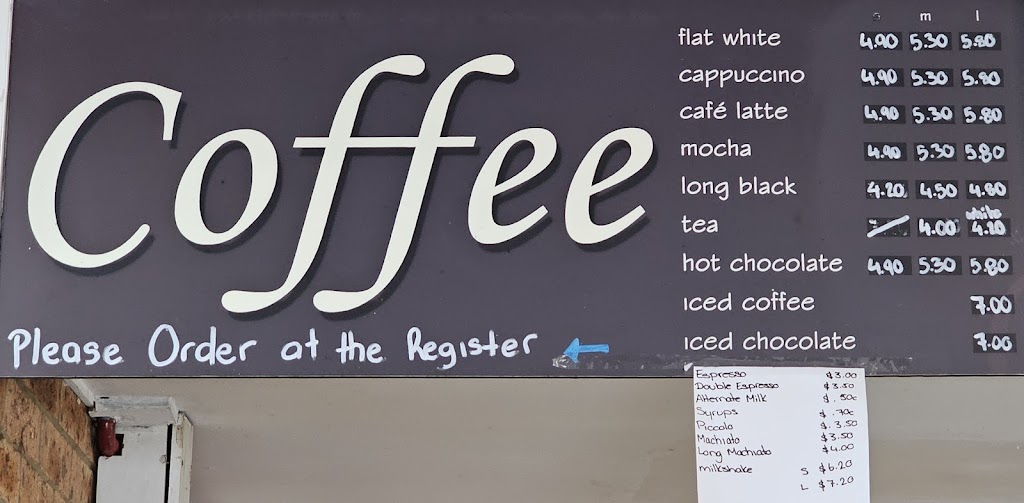 Coffee
Please Order at the Register
s m l
flat white 4.90 5.30 5.80
cappuccino 4.90 5.30 5.80
café latte 4.90 5.30 5.80
mocha 4.90 5.30 5.80
long black 4.20 4.50 4.80
white
tea 4.00 4.20
hot chocolate 4.90 5.30 5.80
iced coffee 7.00
iced chocolate 7.00
Espresso $3.00
Double Espresso $3.50
Alternate Milk $.50c
Syrups $.70c
Piccolo $.3.50
Machiato $3.50
Long Machiato $4.00
milkshake S $6.20
L $7.20